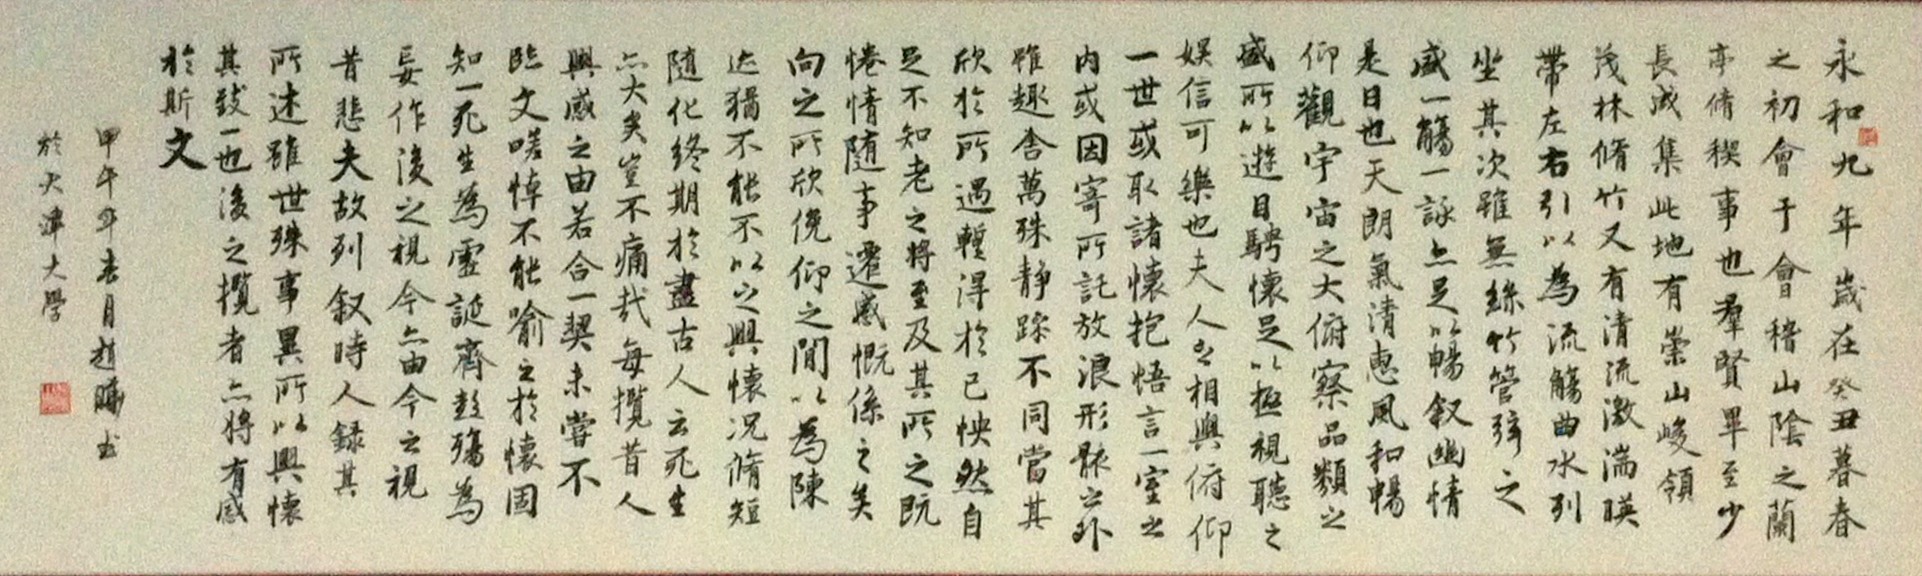 永和九年歲在癸丑暮春
之初會于會稽山陰之蘭
亭脩稧事也羣賢畢至少
長咸集此地有崇山峻領
茂林脩竹又有清流激湍暎
帶左右引以為流觴曲水列
坐其次雖無絲竹管弦之
盛一觴一詠亦足以暢叙幽情
是日也天朗氣清惠風和暢
仰觀宇宙之大俯察品類之
盛所以遊目騁懷足以極視聽之
娛信可樂也夫人之相與俯仰
一世或取諸懷抱悟言一室之
內或因寄所託放浪形骸之外
雖趣舍萬殊靜躁不同當其
欣於所遇暫得於己怏然自
足不知老之將至及其所之既
惓情隨事遷感慨係之矣
向之所欣俛仰之間以為陳
迹猶不能不以之興懷況脩短
隨化終期於盡古人云死生
亦大矣豈不痛哉每攬昔人
興感之由若合一契未嘗不
臨文嗟悼不能喻之於懷固
知一死生為虛誕齊彭殤為
妄作後之視今亦由今之視
昔悲夫故列叙時人録其
所述雖世殊事異所以興懷
其致一也後之攬者亦將有感
於斯文
甲午年 月趙 書
於天津大學